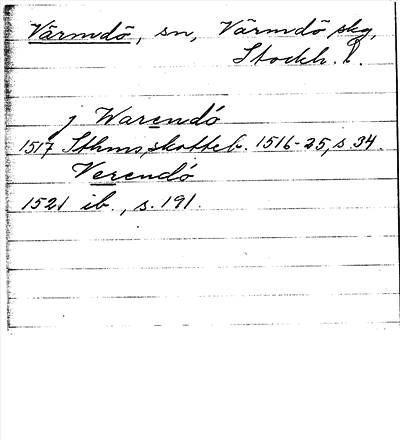 Värmdö, sn, Värmdö skg,
Stockh. l.
j Warendö
1517 Sthms skotteb. 1516-25, s. 34.
Verendö
1521 ib., s. 191.